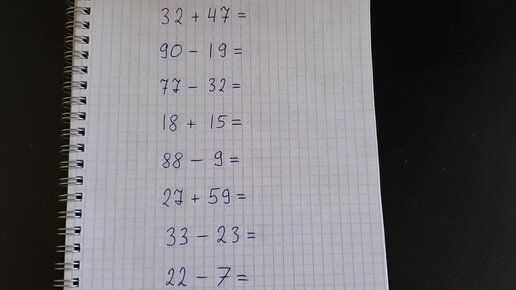 32 + 47 =
90 - 19 =
77 - 32 =
18 + 15 =
88 - 9 =
27 + 59 =
33 - 23 =
22 - 7 =